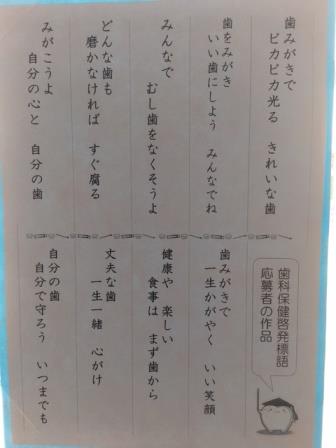 歯みがきで
ピカピカ光る　きれいな歯
歯をみがき
いい歯にしよう　みんなでね
みんなで
むし歯をなくそうよ
どんな歯も
磨かなければ　すぐ腐る
みがこうよ
自分の心と　自分の歯
歯科保健啓発標語
応募者の作品
歯みがきで
一生かがやく　いい笑顔
健康や　楽しい
食事は　まず歯から
丈夫な歯
一生一緒　心がけ
自分の歯
自分で守ろう　いつまでも